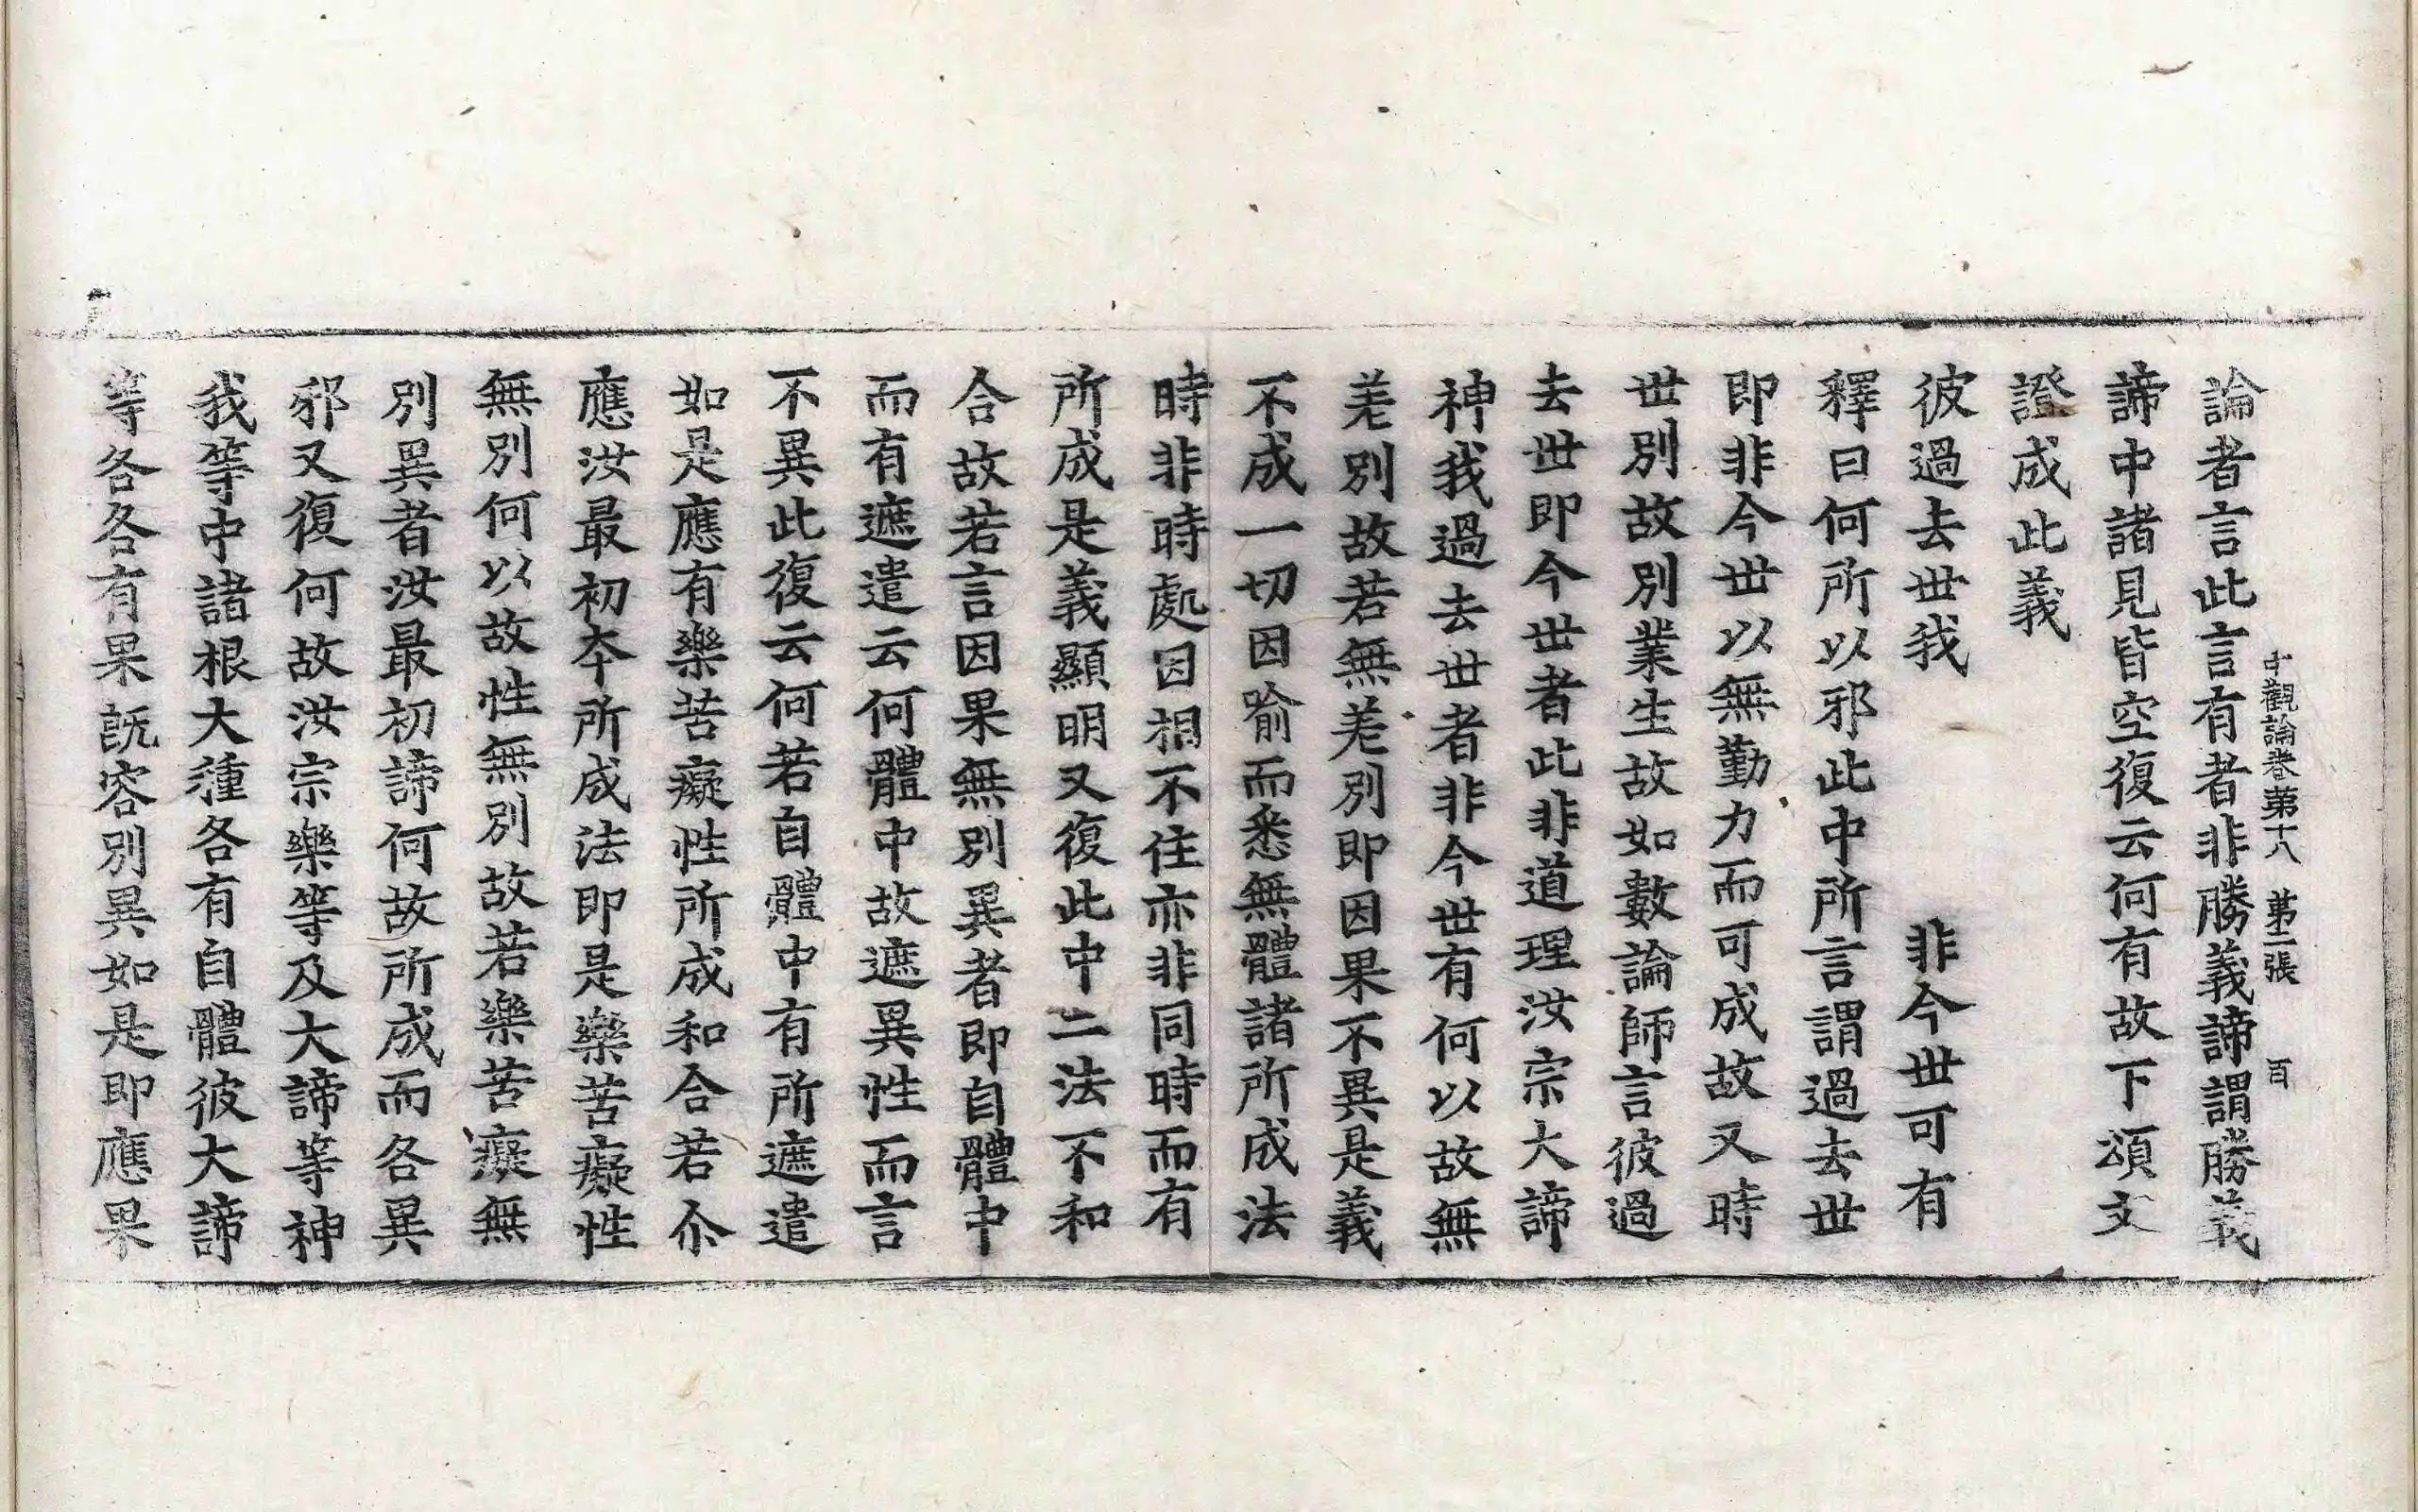 中觀論卷第十八 第二張 百
論者言此言有者非勝義諦謂勝義
諦中諸見皆空復云何有故下頌文
證成此義
彼過去世我 非今世可有
釋曰何所以邪此中所言謂過去世
即非今世以無勤力而可成故又時
世別故別業生故如數論師言彼過
去世即今世者此非道理汝宗大諦
神我過去世者非今世有何以故無
差別故若無差別即因果不異是義
不成一切因喻而悉無體諸所成法
時非時處因相不住亦非同時而有
所成是義顯明又復此中二法不和
合故若言因果無別異者即自體中
而有遮遣云何體中故遮異性而言
不異此復云何若自體中有所遮遣
如是應有樂苦癡性所成和合若尒
應汝最初夲所成法即是樂苦癡性
無別何以故性無別故若樂苦癡無
別異者汝最初諦何故所成而各異
邪又復何故汝宗樂等及大諦等神
我等中諸根大種各有自體彼大諦
等各各有果旣容別異如是即應果